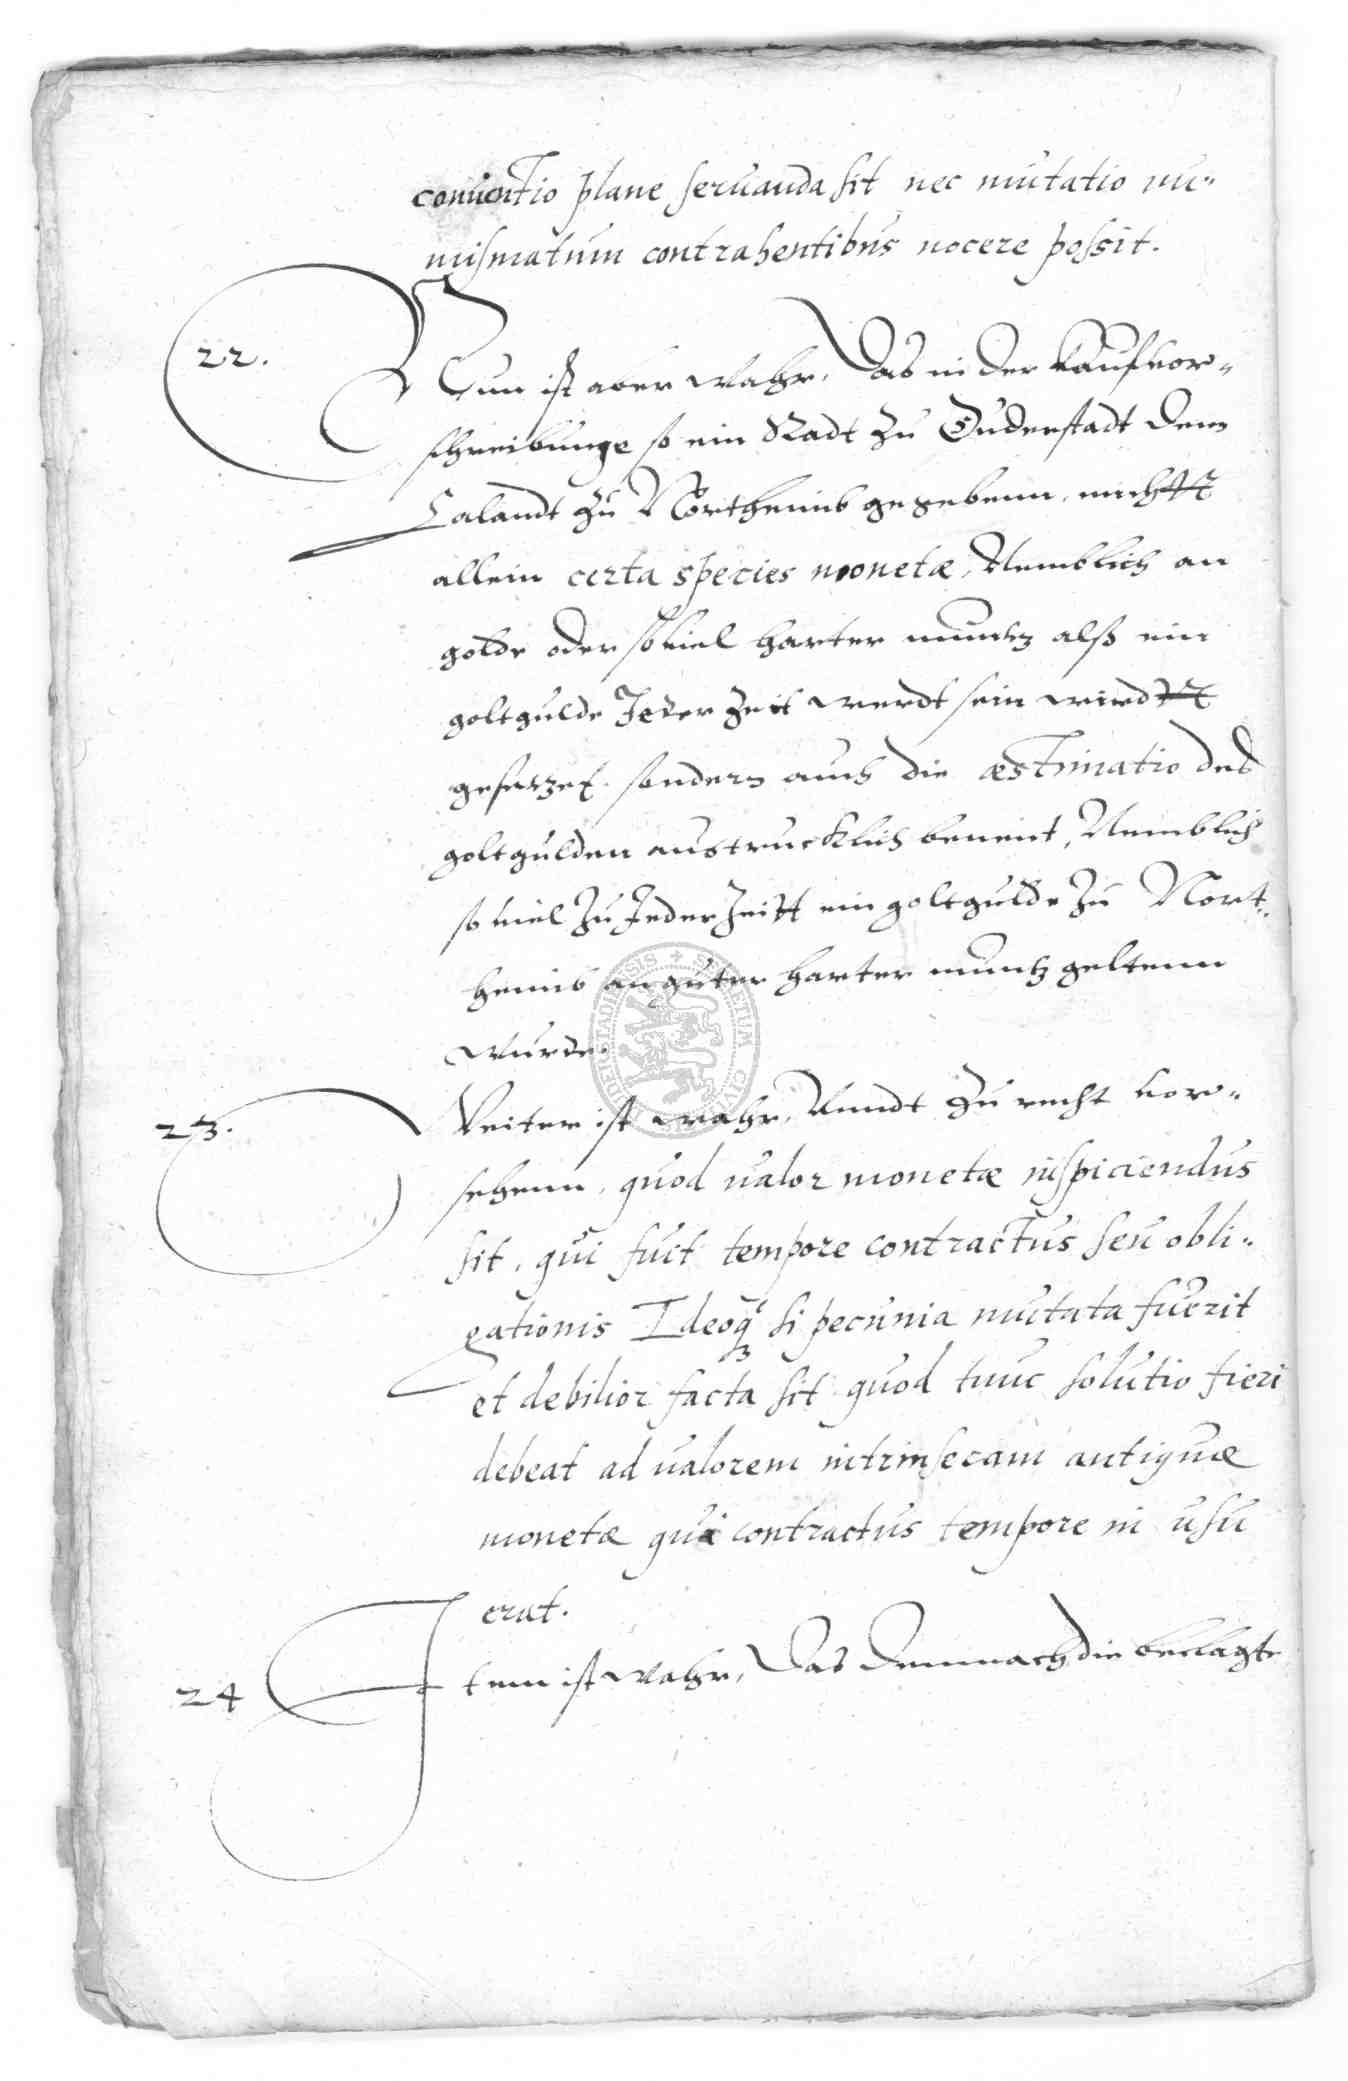 conuentio plane seruanda sit nec mutatio nu-
mismatum contrahentibus nocere possit.
22.
Nun ist aber wahr, Das in der kaufvor-
schreibunge so ein Radt zu Duderstadt dem
Calandt zu Northeimb gegebenn, nichtt
allein certa species monetæ, Nemblich an
golde oder so viel harter muntz alß ein
goltgulde Jeder Zeit werdt sein wirdtt
gesetzet. sondern auch die æstimatio des
goltgulden austrucklich benent, Nemblich
so viel zu Jeder Zeitt ein goltgulde zu Nort-
heimb an guter harter muntz geltenn
wurde.
23.
Weiter ist wahr, Unndt zu recht vor-
sehenn, quod ualor monetæ inspiciendus
sit, qui fuit tempore contractus seu obli-
gationis Ideoq3 si pecunia mutata fuerit
et debilior facta sit quod tunc solutio fieri
debeat ad ualorem intrinsecam antiquæ
monetæ quæ contractus tempore in usu
erat.
24
Item ist wahr, Das demnach die beclagte
SECRETUM CIVITATIS DUDERSTADIENSIS